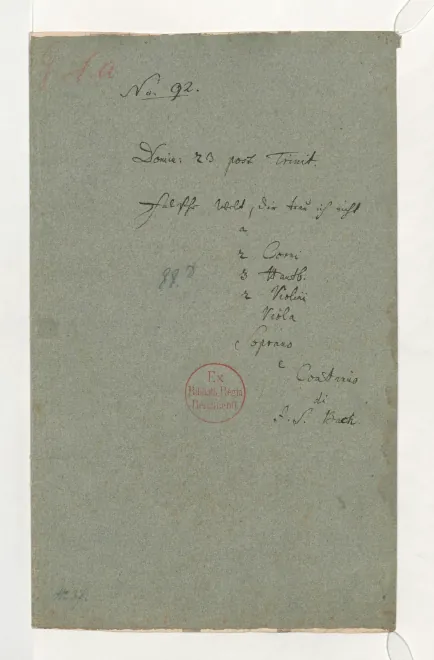 No. 92.
Domin: 23 post Trinit.
Falsche Welt, dir trau ich nicht
a
2 Corni
3 Hautb.
2 Violini
Viola
Soprano
e
Continuo
di
J. S. Bach
Ex
Biblioth. Regia
Berolinensi